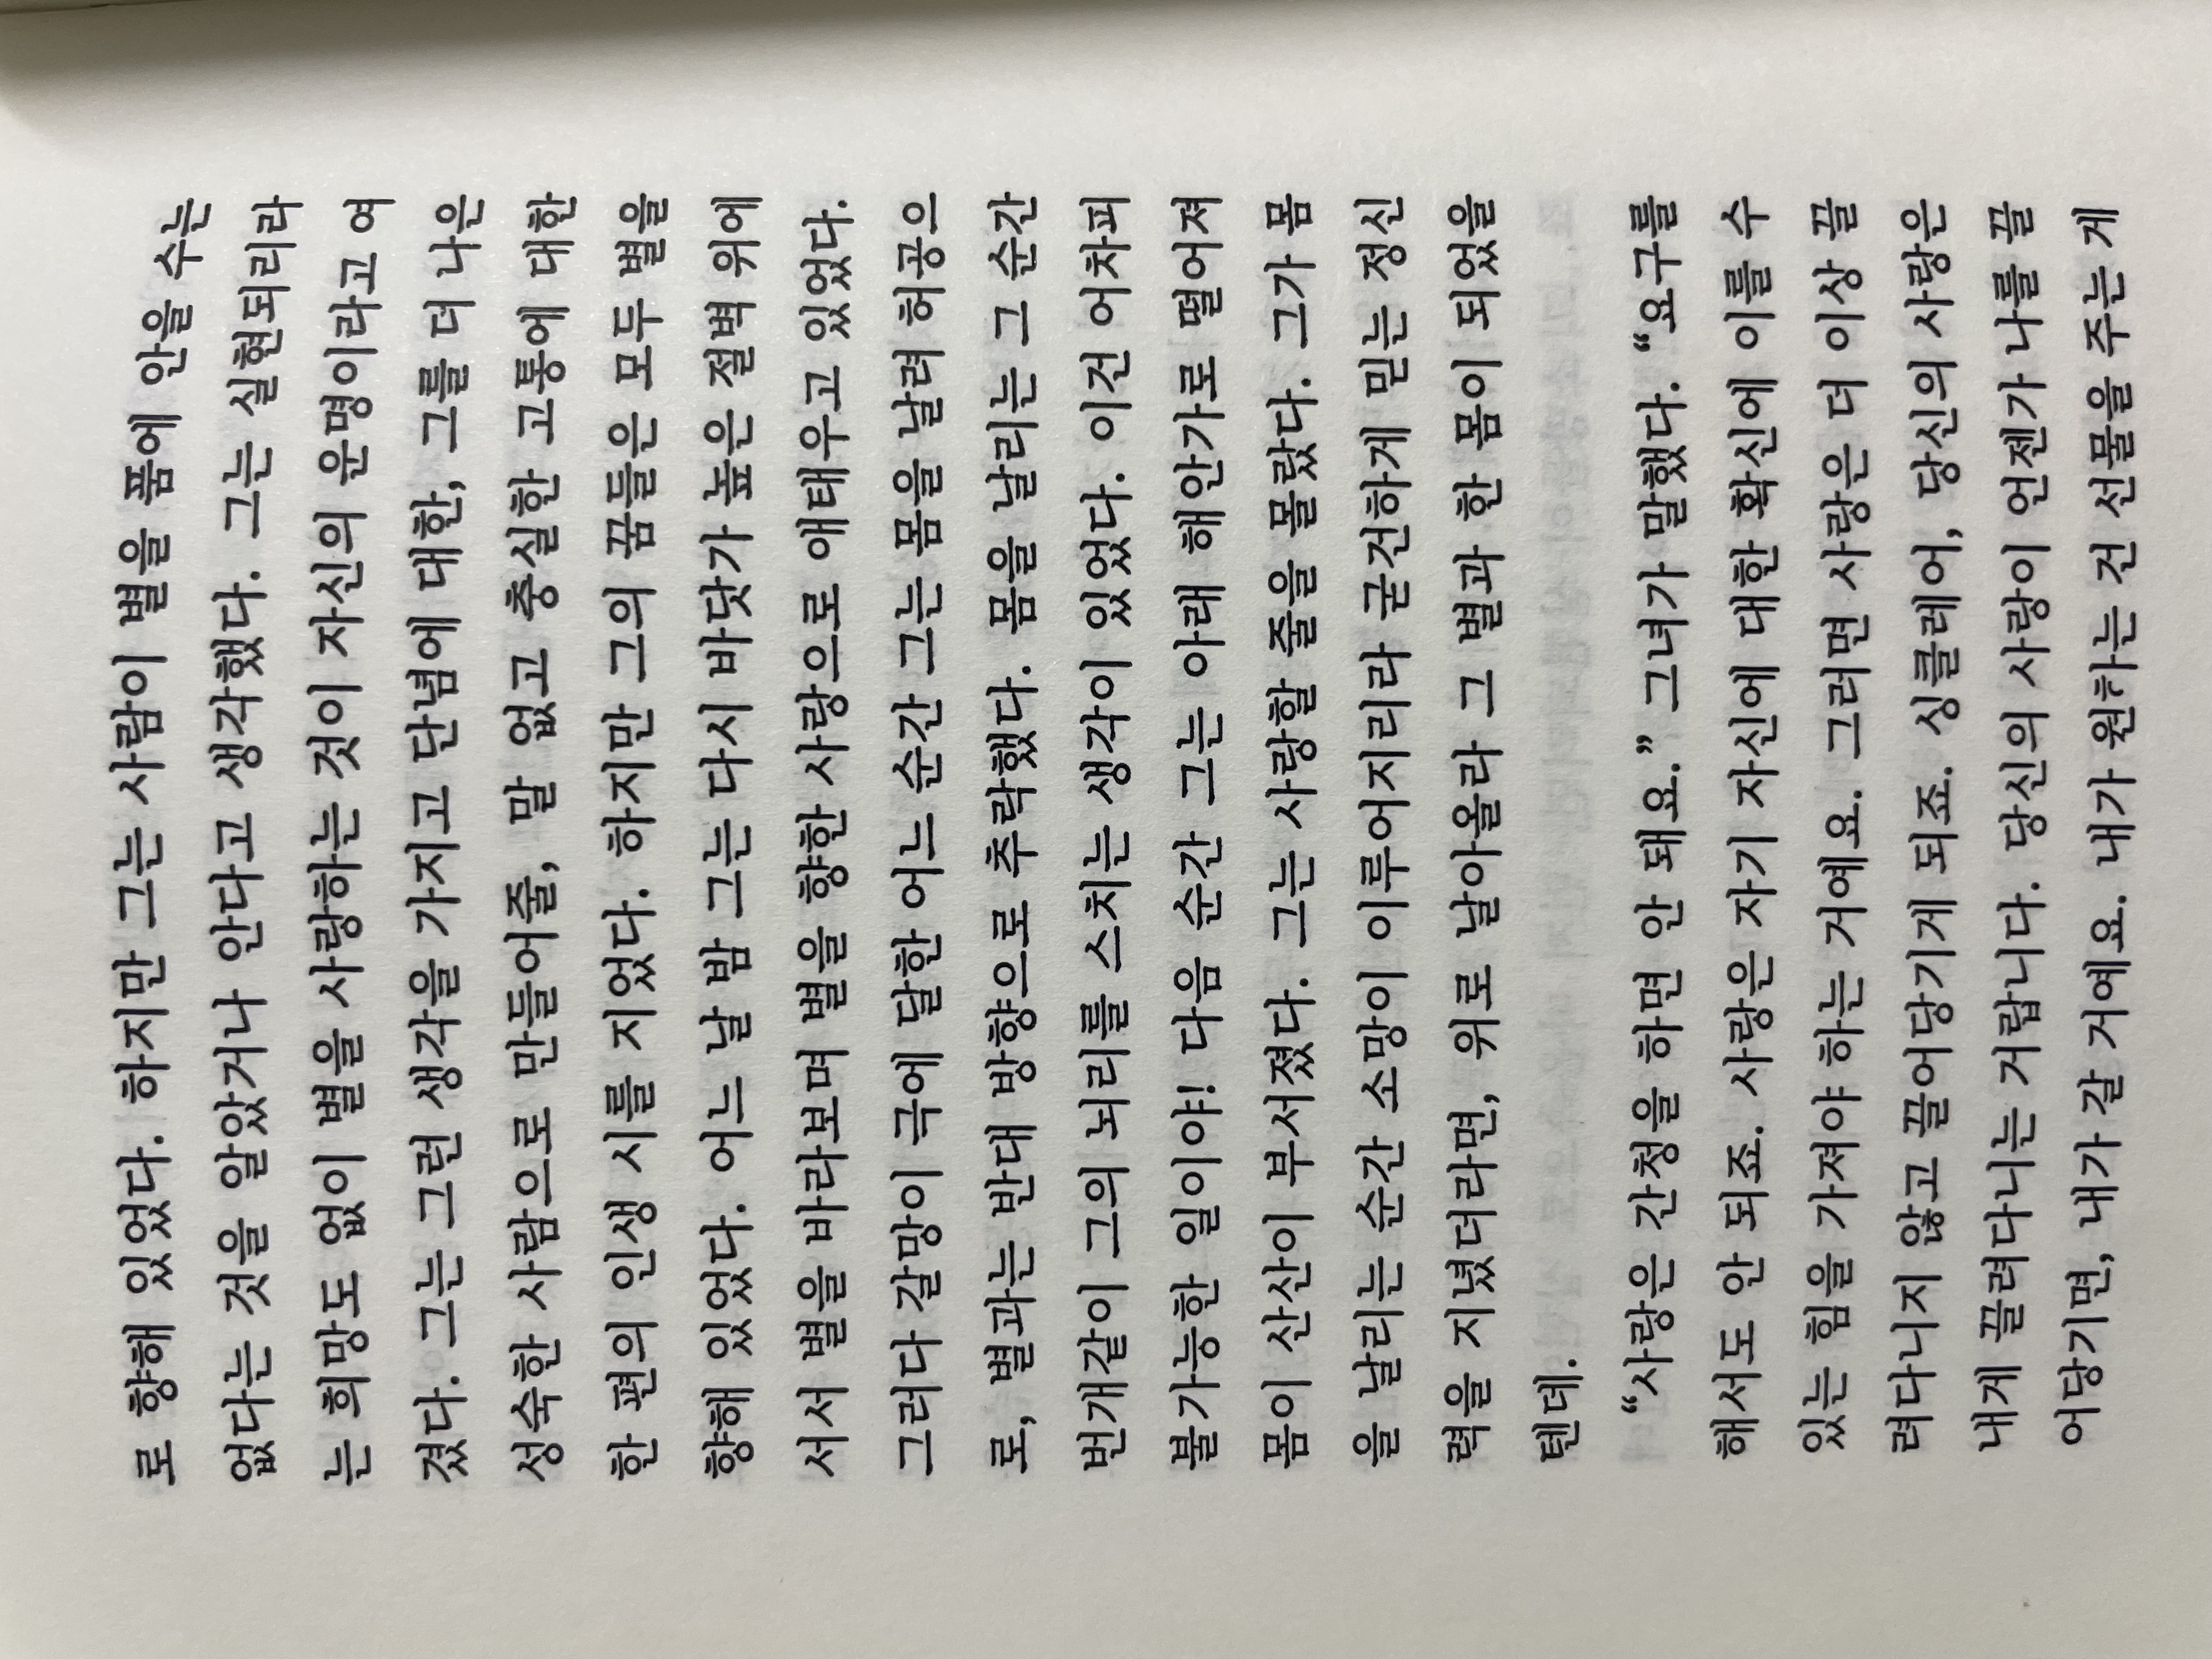 로 향해 있었다. 하지만 그는 사람이 별을 품에 안을 수는
없다는 것을 알았거나 안다고 생각했다. 그는 실현되리라
는 희망도 없이 별을 사랑하는 것이 자신의 운명이라고 여
겼다. 그는 그런 생각을 가지고 단념에 대한, 그를 더 나은
성숙한 사람으로 만들어줄, 말 없고 충실한 고통에 대한
한 편의 인생 시를 지었다. 하지만 그의 꿈들은 모두 별을
향해 있었다. 어느 날 밤 그는 다시 바닷가 높은 절벽 위에
서서 별을 바라보며 별을 향한 사랑으로 애태우고 있었다.
그러다 갈망이 극에 달한 어느 순간 그는 몸을 날려 허공으
로, 별과는 반대 방향으로 추락했다. 몸을 날리는 그 순간
번개같이 그의 뇌리를 스치는 생각이 있었다. 이건 어차피
불가능한 일이야! 다음 순간 그는 아래 해안가로 떨어져
몸이 산산이 부서졌다. 그는 사랑할 줄을 몰랐다. 그가 몸
을 날리는 순간 소망이 이루어지리라 굳건하게 믿는 정신
력을 지녔더라면, 위로 날아올라 그 별과 한 몸이 되었을
텐데.
“사랑은 간청을 하면 안 돼요.” 그녀가 말했다. “요구를
해서도 안 되죠. 사랑은 자기 자신에 대한 확신에 이를 수
있는 힘을 가져야 하는 거예요. 그러면 사랑은 더 이상 끌
려다니지 않고 끌어당기게 되죠. 싱클레어, 당신의 사랑은
내게 끌려다니는 거랍니다. 당신의 사랑이 언젠가 나를 끌
어당기면, 내가 갈 거예요. 내가 원하는 건 선물을 주는 게